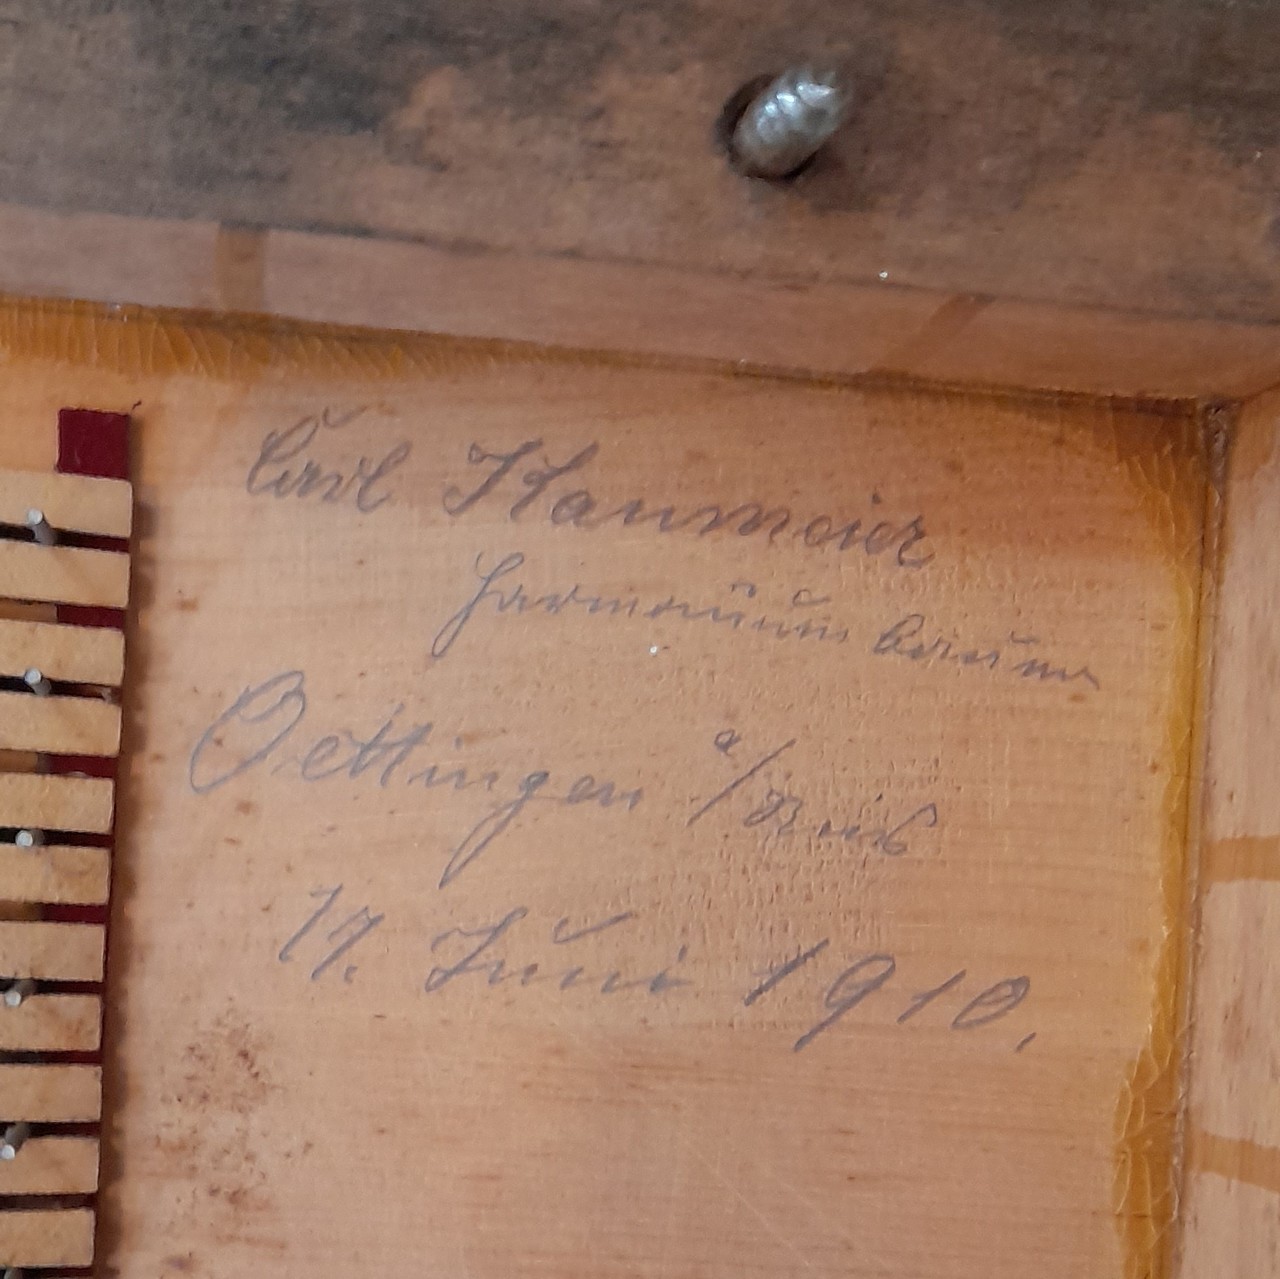 Carl Haumeier
Harmoniumbauer
Oettingen a/Ries
17. Juni 1910.